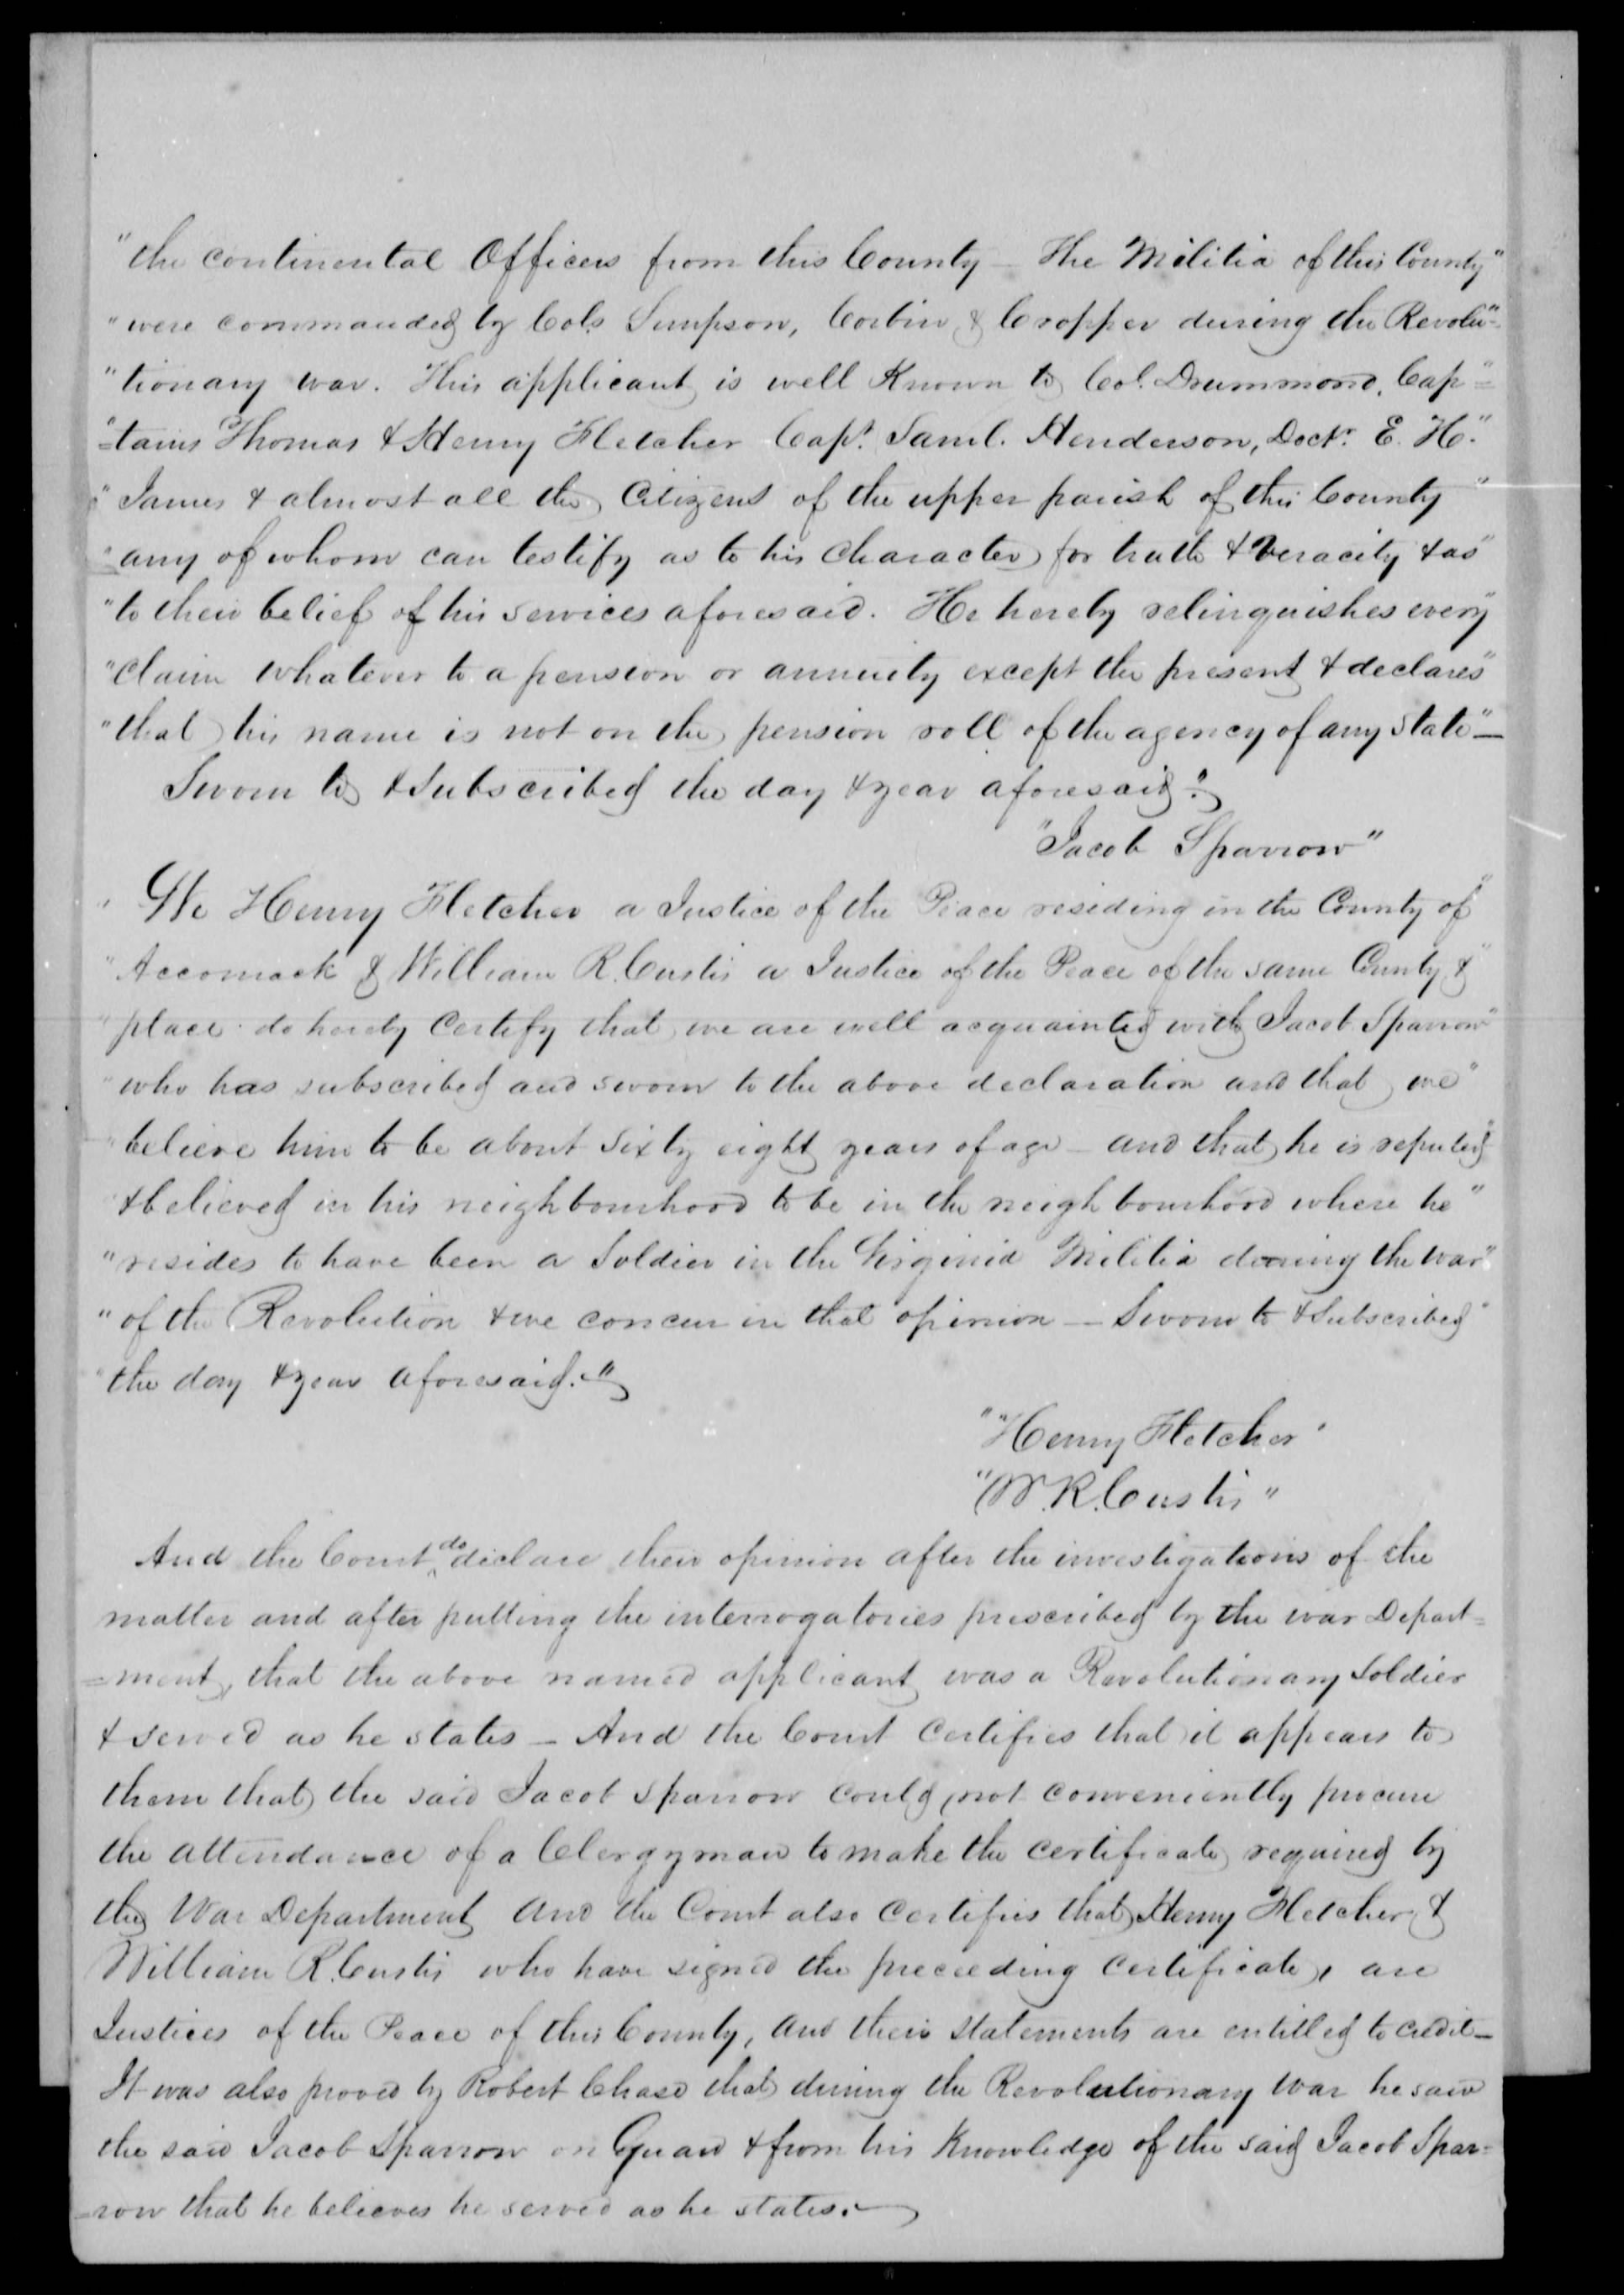 "the continental Officers from this County – The Militia of this County"
"were commanded by Cols Simpson, Corbin & Cropper during the Revolu"=
"tionary war. This applicant is well Known to Col. Drummond, Cap"=
"=tains Thomas & Henry Fletcher Capt. Saml. Henderson, Doctr. E. H."
"James & almost all the Citizens of the upper parish of this County"
"any of whom can testify as to his Character for truth & veracity & as"
"to their belief of his services aforesaid. He hereby relinquishes every"
"claim whatever to a pension or annuity except the present & declares"
"that his name is not on the pension roll of the agency of any State"—
Sworn to & Subscribed the day & year aforesaid."
"Jacob Sparrow"
"We Henry Fletcher a Justice of the Peace residing in the County of"
"Accomack & William R. Custis a Justice of the Peace of the same County &"
"place do hereby Certify that we are well acquainted with Jacob Sparrow"
"who has subscribed and sworn to the above declaration and that we"
"believe him to be about Sixty eight years of age – and that he is reputed"
"& believed in his neighbourhood to be in the neighbourhood where he"
"resides to have been a Soldier in the Virginia Militia during the war"
"of the Revolution & we concur in that opinion — Sworn to & Subscribed"
"the day & year aforesaid."
"Henry Fletcher"
"W. R. Custis"
And the Court do declare their opinion after the investigations of the
matter and after putting the interrogatories prescribed by the war Depart=
=ment, that the above named applicant was a Revolutionary Soldier
& served as he states – And the Court Certifies that it appears to
them that the said Jacob Sparrow could not conveniently procure
the attendance of a Clergyman to make the certificate required by
the War Department and the Court also Certifies that Henry Fletcher &
William R. Custis who have signed the preceeding Certificate, are
Justices of the Peace of this County, and their statements are entitled to credit—
It was also proved by Robert Chase that during the Revolutionary War he saw
the said Jacob Sparrow on Guard & from his Knowledge of the said Jacob Spar=
=row that he believes he served as he states.